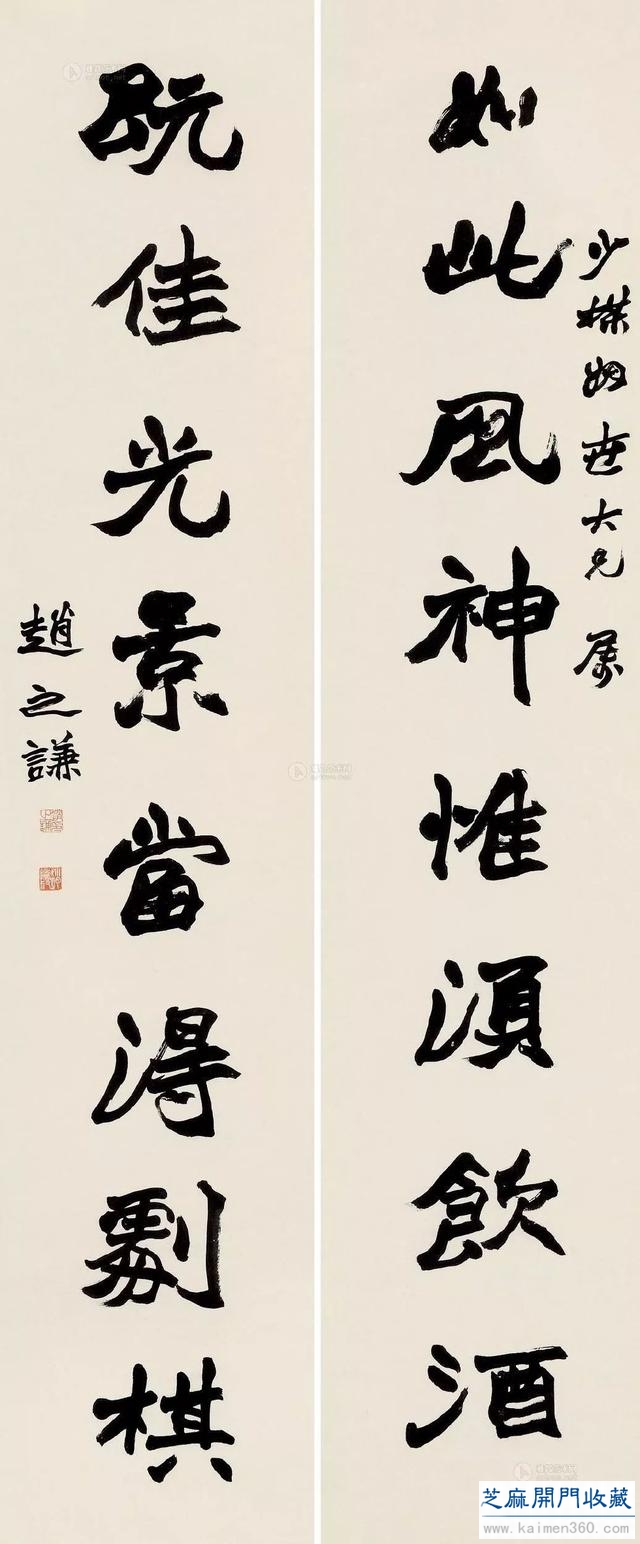 少樸姻世大兄屬
如此風神惟須飲酒
既佳光景當得劇棋
趙之謙
芝麻開門收藏
www.kaimen360.com